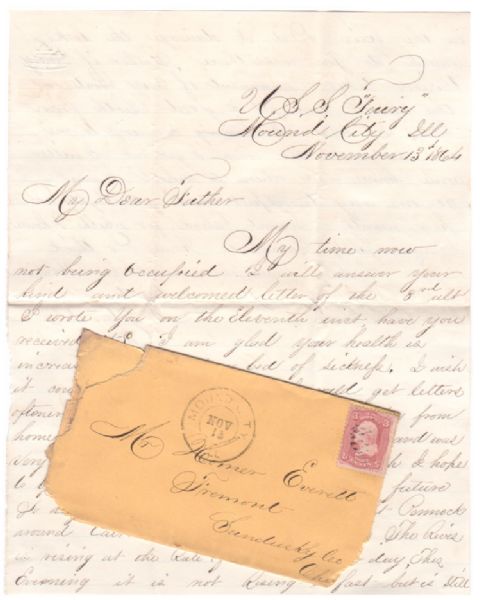 U.S.S. "Fairy"
Mound City Ill
November 13th 1864
My Dear Father
My time now
not being occupied I will answer your
kind and welcomed letter of the 3rd ult
I wrote You on the Eleventh inst, have you
received it I am glad your health is
bid of sickness. I wish
it get letters
oftening from
home and was
very I hope
to future
It Pennock
around The River
is rising at the Rate of day This
Evening it is not Rising fast but is still
MOUND CITY
NOV
Mr Homer Everett
Fremont
Sandusky Co
Ohio
3 3